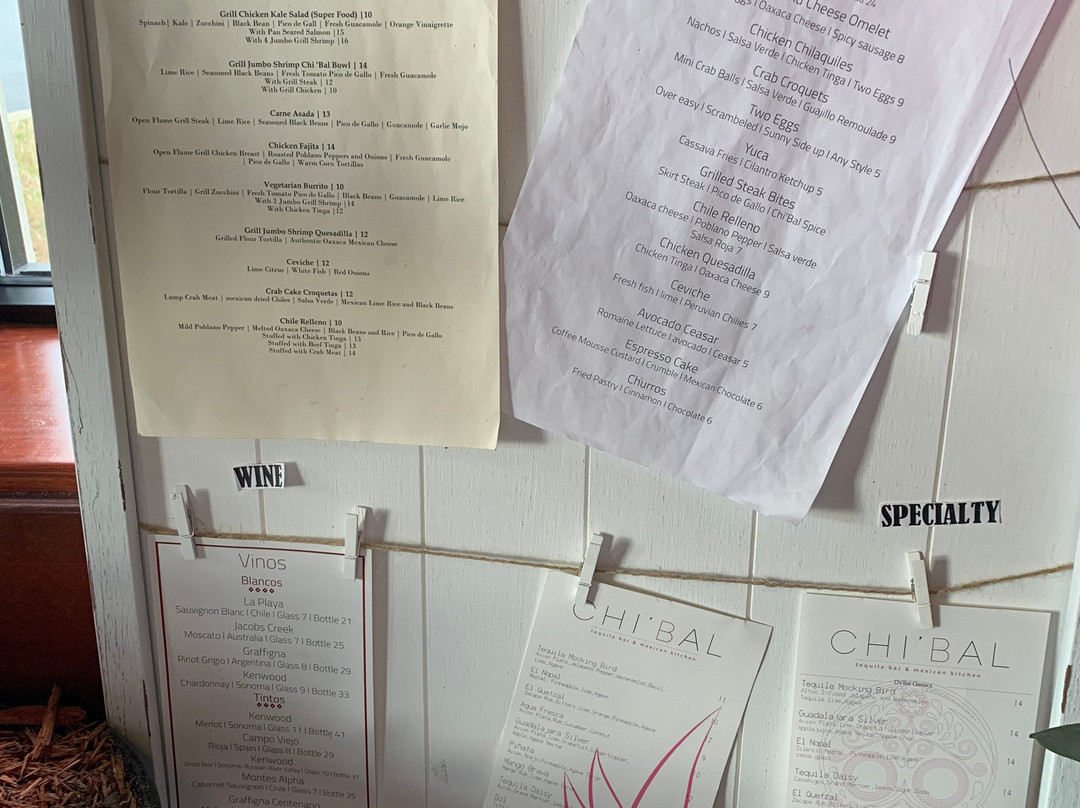 Grill Chicken Kale Salad (Super Food) |10
Spinach| Kale | Zucchini | Black Bean | Pico de Gall | Fresh Guacamole | Orange Vinaigrette
With Pan Seared Salmon |15
With 4 Jumbo Grill Shrimp |16
Grill Jumbo Shrimp Chi 'Bal Bowl | 14
Lime Rice | Seasoned Black Beans | Fresh Tomato Pico de Gallo | Fresh Guacamole
With Grill Steak | 12
With Grill Chicken | 10
Carne Asada | 13
Open Flame Grill Steak | Lime Rice | Seasoned Black Beans | Pico de Gallo | Guacamole | Garlic Mojo
Chicken Fajita | 14
Open Flame Grill Chicken Breast | Roasted Poblano Peppers and Onions | Fresh Guacamole
| Pico de Gallo | Warm Corn Tortillas
Vegetarian Burrito | 10
Flour Tortilla | Grill Zucchini | Fresh Tomato Pico de Gallo | Black Beans | Guacamole | Lime Rice
With 3 Jumbo Grill Shrimp |14
With Chicken Tinga |12
Grill Jumbo Shrimp Quesadilla | 12
Grilled Flour Tortilla | Authentic Oaxaca Mexican Cheese
Ceviche | 12
Lime Citrus | White Fish | Red Onions
Crab Cake Croquetas | 12
Lump Crab Meat | mexican dried Chiles | Salsa Verde | Mexican Lime Rice and Black Beans
Chile Relleno | 10
Mild Poblano Pepper | Malted Oaxaca Cheese | Black Beans and Rice | Pico de Gallo
Stuffed with Chicken Tinga | 13
Stuffed with Beef Tinga | 13
Stuffed with Crab Meat | 14
24
Cheese Omelet
Eggs | Oaxaca Cheese | Spicy sausage 8
Chicken Chilaquiles
Nachos | Salsa Verde | Chicken Tinga | Two Eggs 9
Crab Croquets
Mini Crab Balls | Salsa Verde | Guajillo Remoulade 9
Two Eggs
Over easy | Scrambeled | Sunny Side up | Any Style 5
Yuca
Cassava Fries | Cilantro Ketchup 5
Grilled Steak Bites
Skirt Steak | Pico de Gallo | Chi'Bal Spice
Chile Relleno
Oaxaca cheese | Poblano Pepper | Salsa verde
Salsa Roja 7
Chicken Quesadilla
Chicken Tinga | Oaxaca Cheese 9
Ceviche
Fresh fish | lime | Peruvian Chilies 7
Avocado Ceasar
Romaine Lettuce | avocado | Ceasar 5
Espresso Cake
Coffee Mousse Custard | Crumble | Mexican Chocolate 6
Churros
Fried Pastry | Cinnamon | Chocolate 6
WINE
SPECIALTY
Vinos
Blancos
La Playa
Sauvignon Blanc | Chile | Glass 7 | Bottle 21
Jacobs Creek
Moscato | Australia | Glass 7 | Bottle 25
Graffigna
Pinot Grigio | Argentina | Glass 8 | Bottle 29
Kenwood
Chardonnay | Sonoma | Glass 9 | Bottle 33
Tintos
Kenwood
Merlot | Sonoma | Glass 11 | Bottle 41
Campo Viejo
Rioja | Spain | Glass 8 | Bottle 29
Kenwood
Pinot Noir | Sonoma-Russian River Valley | Glass 10 | Bottle 37
Montes Alpha
Cabernet Sauvignon | Chile | Glass 7 | Bottle 25
Graffigna Centenario
CHI'BAL
tequila bar & mexican kitchen
Tequila Mocking Bird
Avion Plata, Jalapeno Pepper, Watermelon, Basil,
Lime, Agave
11
El Nopal
Mezcal, Pineapple, Lime, Agave
El Quetzal
Zacapa Rum, Bitters, Lime, Orange, Pineapple, Agave
Agua Fresca
Avion Plata, Rum, Cucumber, Coconut
Guadalajara Silver
Avion Plata, Lime, Grapefruit, Ginger Liqueur,
Apple, Agave Nectar
Piñata
Avion Anejo, Pineapple, Lime, Agave
Mango Bravo
Tequila Daisy
Sol
CHI'BAL
tequila bar & mexican kitchen
Chi'Bal Classics
Tequila Mocking Bird
Altos Infused Jalapeno and
Tequila Lime, Agave
14
Guadalajara Silver
14
El Nopal
14
Tequila Daisy
14
El Quetzal